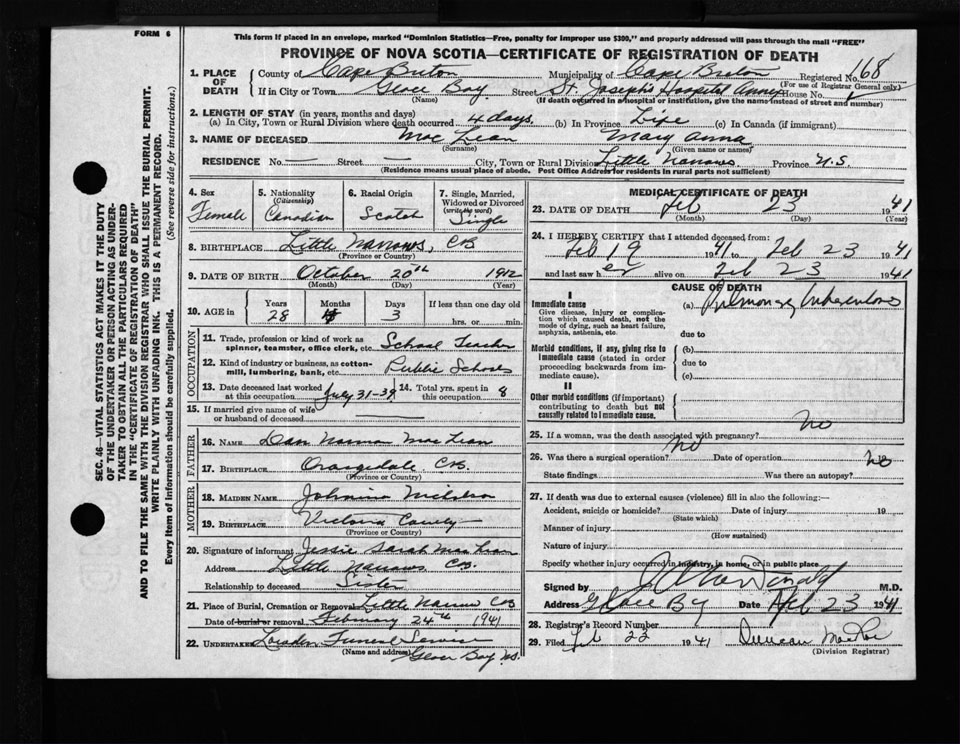 FORM 6
This form if placed in an envelope, marked "Dominion Statistics—Free, penalty for improper use $300," and properly addressed will pass through the mail "FREE"
PROVINCE OF NOVA SCOTIA—CERTIFICATE OF REGISTRATION OF DEATH
SEC. 46—VITAL STATISTICS ACT MAKES IT THE DUTY
OF THE UNDERTAKER OR PERSON ACTING AS UNDER-
TAKER TO OBTAIN ALL THE PARTICULARS REQUIRED
IN THE "CERTIFICATE OF REGISTRATION OF DEATH"
AND TO FILE THE SAME WITH THE DIVISION REGISTRAR WHO SHALL ISSUE THE BURIAL PERMIT.
WRITE PLAINLY WITH UNFADING INK. THIS IS A PERMANENT RECORD.
Every item of Information should be carefully supplied. (See reverse side for instructions.)
1. PLACE OF DEATH
County of Cape Breton Municipality of Cape Breton Registered No. 168
(For use of Registrar General only)
If in City or Town Glace Bay Street St. Joseph's Hospital Annex House No.
(Name) (If death occurred in a hospital or institution, give the name instead of street and number)
2. LENGTH OF STAY (in years, months and days)
(a) In City, Town or Rural Division where death occurred 4 days. (b) In Province Life (c) In Canada (if immigrant)
3. NAME OF DECEASED Mac Lean Mary Anna
(Surname) (Given name or names)
RESIDENCE No. — Street — City, Town or Rural Division Little Narrows Province N.S.
(Residence means usual place of abode. Post Office Address for residents in rural parts not sufficient)
4. Sex Female
5. Nationality (Citizenship) Canadian
6. Racial Origin Scotch
7. Single, Married, Widowed or Divorced (write the word) Single
8. BIRTHPLACE Little Narrows, CB
(Province or Country)
9. DATE OF BIRTH October 20th 1912
(Month) (Day) (Year)
10. AGE in Years 28 Months 4 Days 3 If less than one day old
hrs. or min.
OCCUPATION
11. Trade, profession or kind of work as spinner, teamster, office clerk, etc. School Teacher
12. Kind of industry or business, as cotton-mill, lumbering, bank, etc. Public Schools
13. Date deceased last worked at this occupation July 31-39 14. Total yrs. spent in this occupation 8
15. If married give name of wife or husband of deceased
FATHER
16. NAME Dan Norman MacLean
17. BIRTHPLACE Orangedale CB.
(Province or Country)
MOTHER
18. MAIDEN NAME Johnina Nicholson
19. BIRTHPLACE Victoria County
(Province or Country)
20. Signature of informant Jessie Sarah MacLean
Address Little Narrows CB.
Relationship to deceased Sister
21. Place of Burial, Cremation or Removal Little Narrows CB
Date of burial or removal February 24th 1941
22. UNDERTAKER Funeral Service
(Name and address) Glace Bay NS.
MEDICAL CERTIFICATE OF DEATH
23. DATE OF DEATH Feb 23 1941
(Month) (Day) (Year)
24. I HEREBY CERTIFY that I attended deceased from:
Feb 19 1941 to Feb 23 1941
and last saw her alive on Feb 23 1941
CAUSE OF DEATH
I
Immediate cause (a) Pulmonary Tuberculosis
Give disease, injury or complication which caused death, not the mode of dying, such as heart failure, asphyxia, asthenia, etc.
due to
Morbid conditions, if any, giving rise to immediate cause (stated in order proceeding backwards from immediate cause).
(b)
due to
(c)
II
Other morbid conditions (if important) contributing to death but not causally related to immediate cause.
25. If a woman, was the death associated with pregnancy? No
26. Was there a surgical operation? No Date of operation
State findings Was there an autopsy? No
27. If death was due to external causes (violence) fill in also the following:—
Accident, suicide or homicide? Date of injury 19
(State which)
Manner of injury
(How sustained)
Nature of injury
Specify whether injury occurred in industry, in home, or in public place.
Signed by M.D.
Address Glace Bay Date Feb 23 1941
28. Registrar's Record Number
29. Filed Feb 22 1941 Duncan
(Division Registrar)